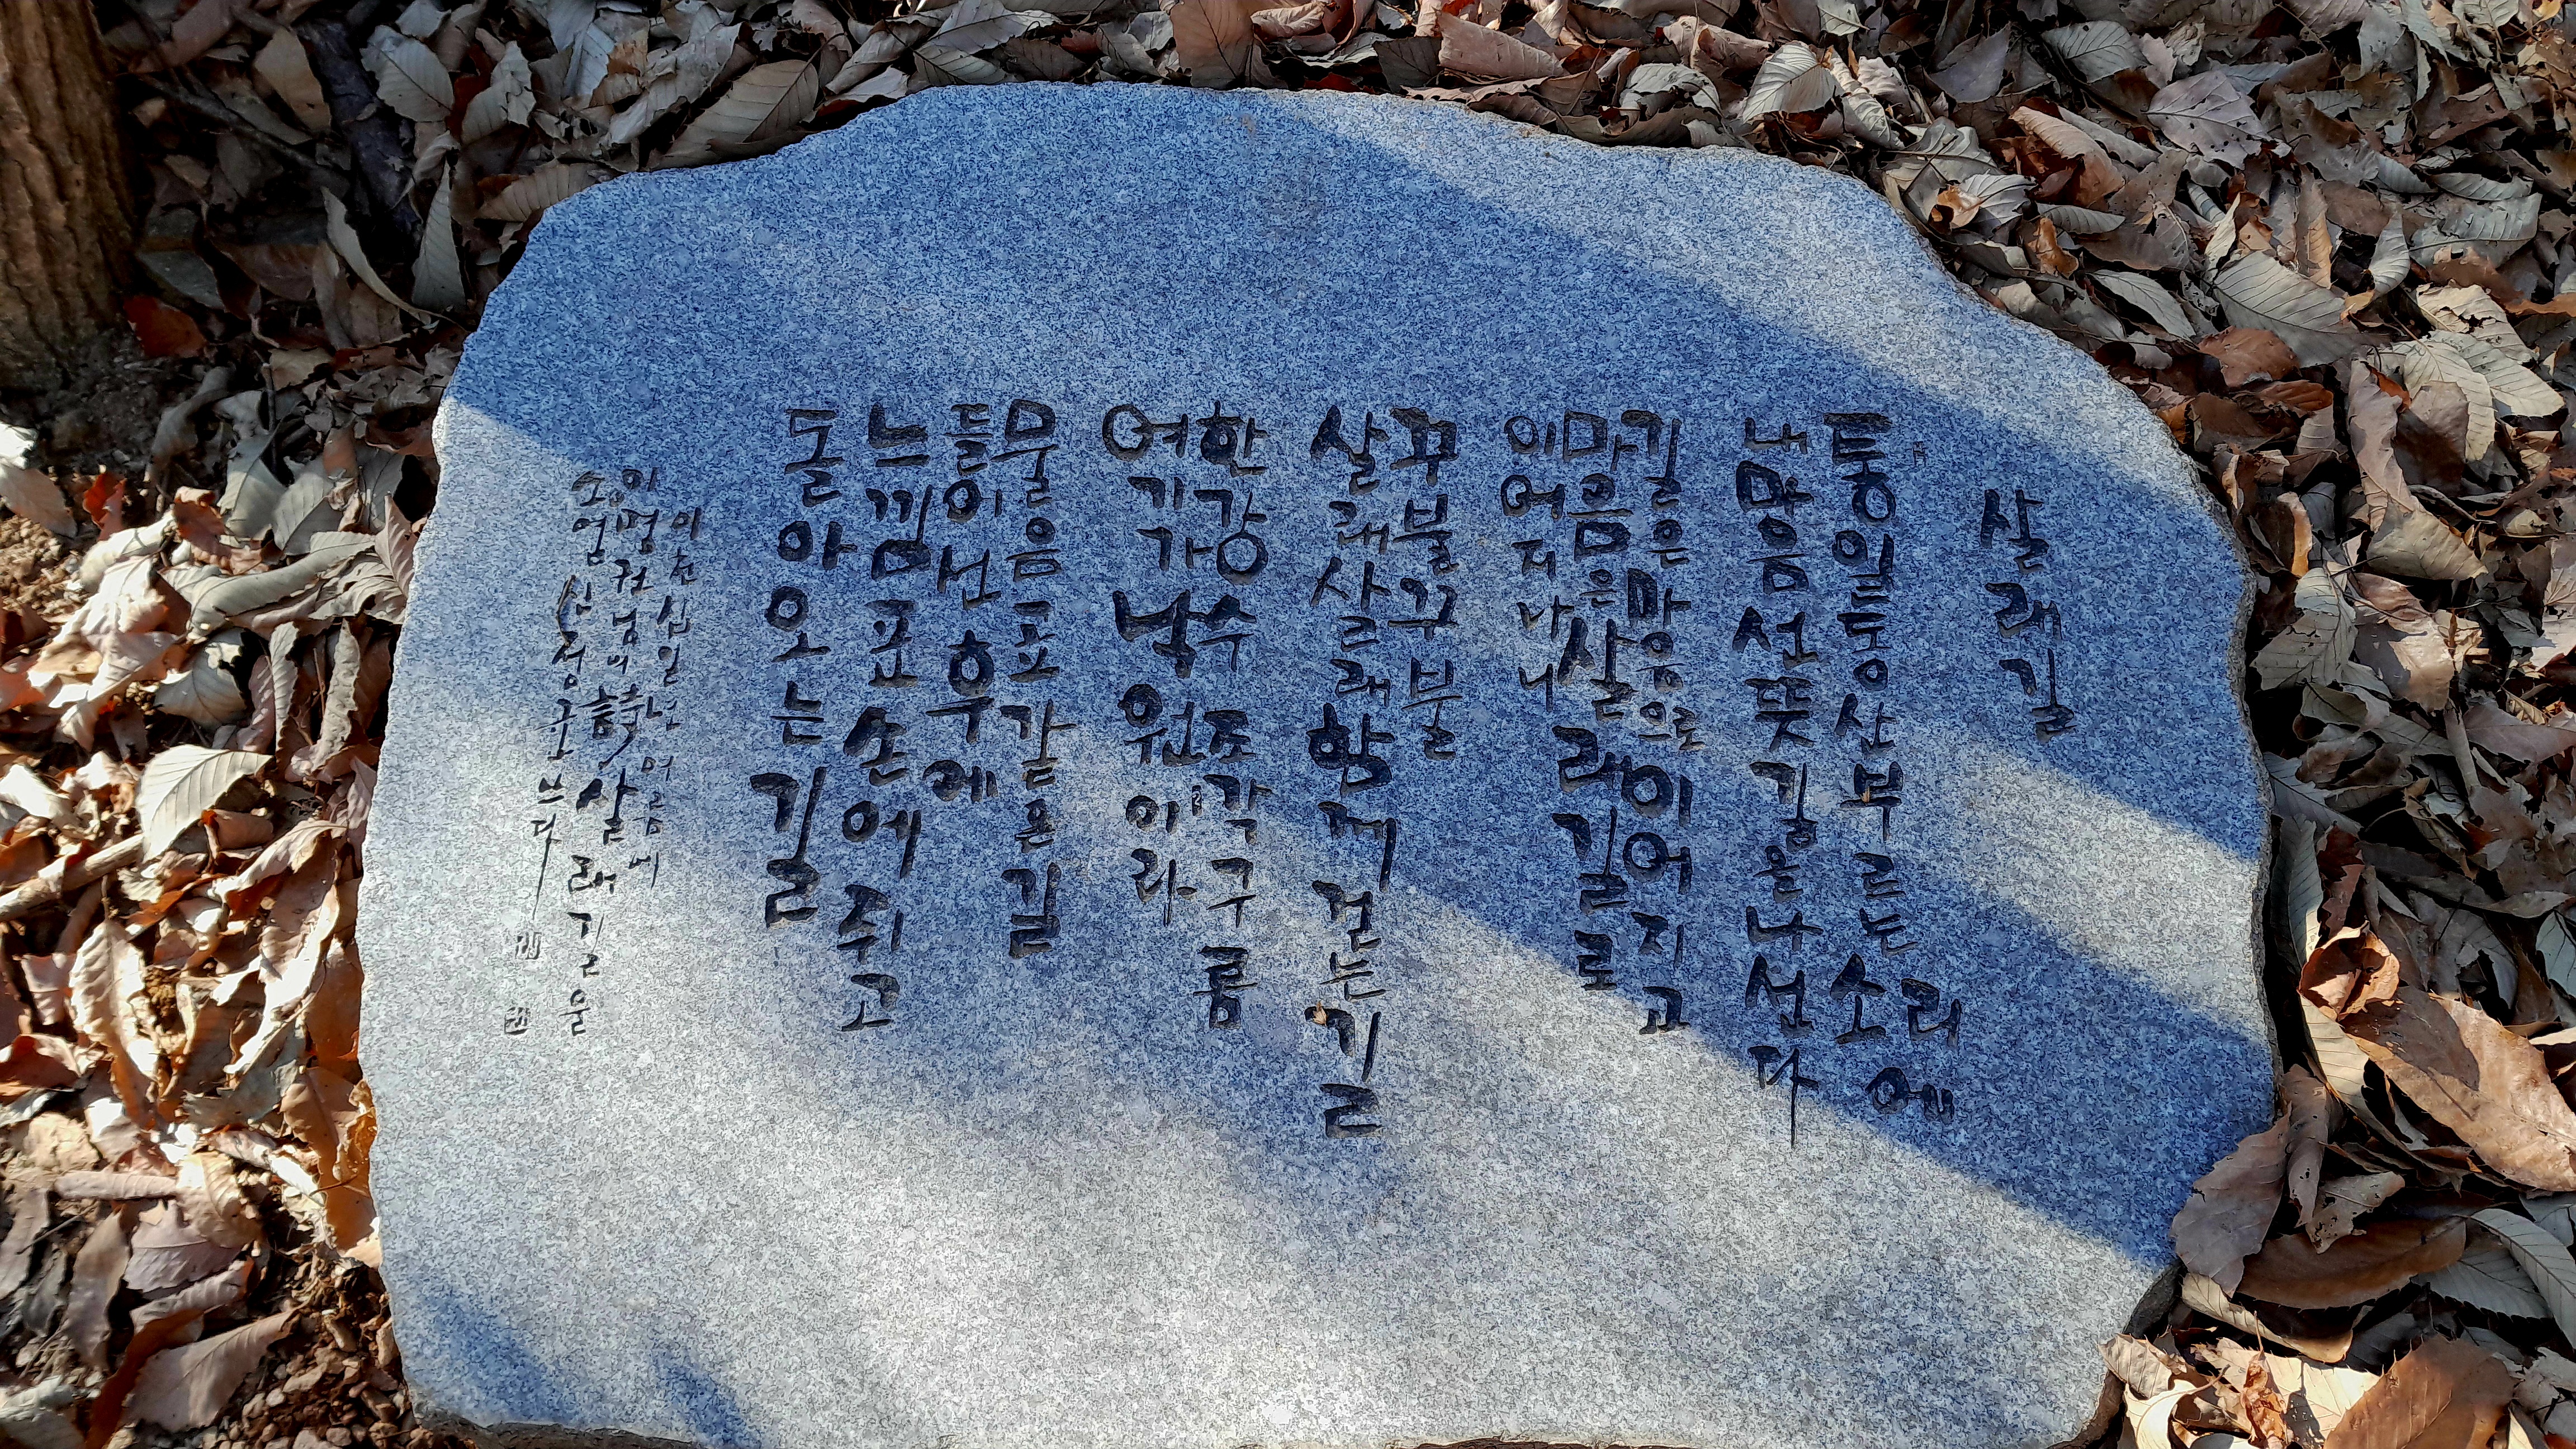 살래길
통일동산 부르는 소리에
내 마음 선뜻 길을 나섰다
길은 마음으로 이어지고
마음은 살래길로
이어지나니
꾸불꾸불
살래살래 함께 걷는 길
한강수 조각구름
여기가 낙원이라
물음표 같은 길
들어선 후에
느낌표 손에 쥐고
돌아오는 길
이천십일년 여름에
이명권님의 詩 살래길을
소얼 신정균 쓰다